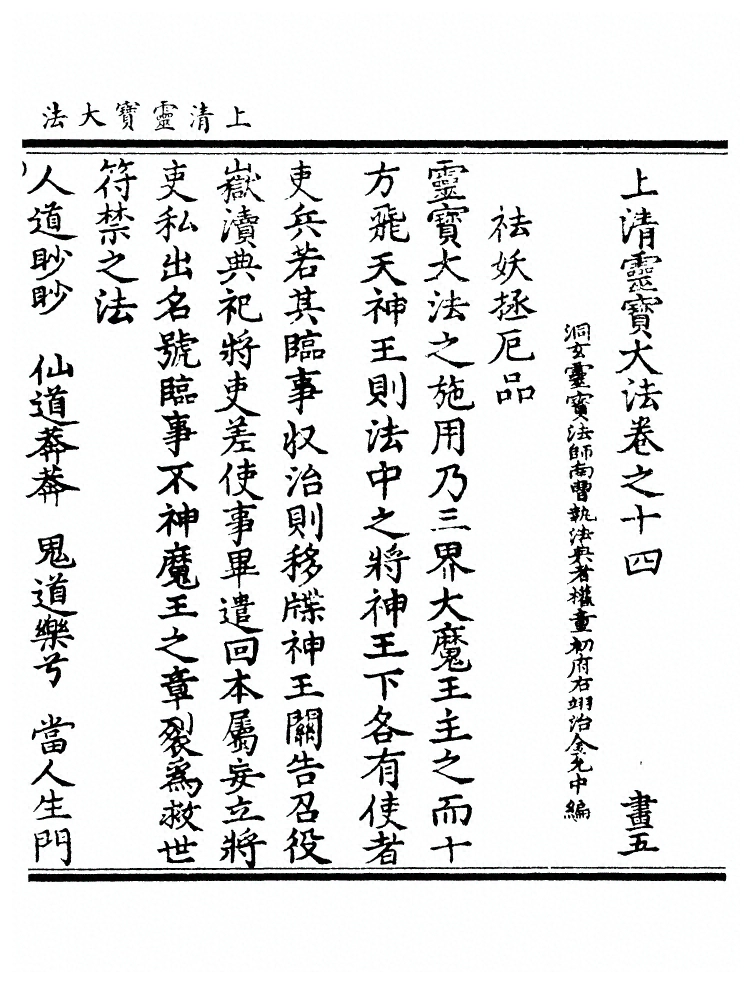 上清靈寶大法
上清靈寶大法卷之十四 畫五
洞玄靈寶法師南曹執法典者權童初府右翊治金允中編
祛妖拯厄品
靈寶大法之施用乃三界大魔王主之而十
方飛天神王則法中之將神王下各有使者
吏兵若其臨事收治則移牒神王關告召役
嶽瀆典祀將吏差使事畢遣回本屬妄立將
吏私出名號臨事不神魔王之章裂爲救世
符禁之法
人道眇眇 仙道莾莾 鬼道樂兮 當人生門